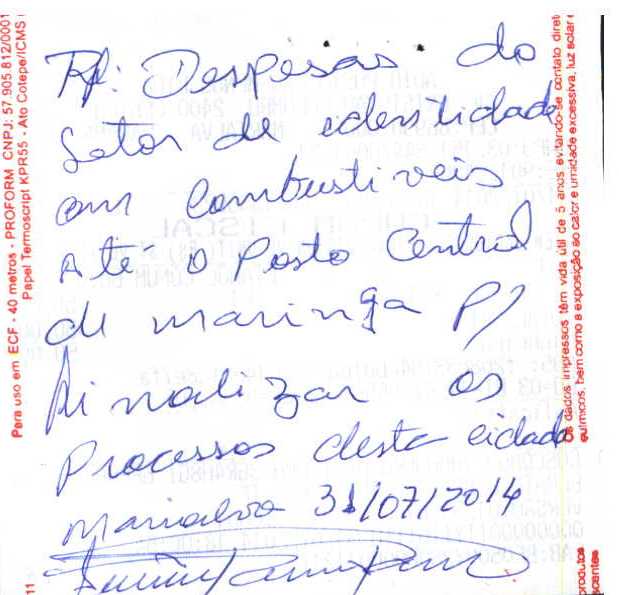 Rf: Despesas do
Setor de identidade
em Combustiveis
Até o Posto Central
de maringa P/
finalizar os
Processos desta cidade
Marialva 31/07/2014
Para uso em ECF - 40 metros - PROFORM CNPJ: 57.905.812/0001
Papel Termoscript KPR55 - Ato Cotepe/ICMS
Os dados impressos têm vida útil de 5 anos, evitando-se contato diret
químicos, bem como a exposição ao calor e umidade excessiva, luz solar e
produtos
11